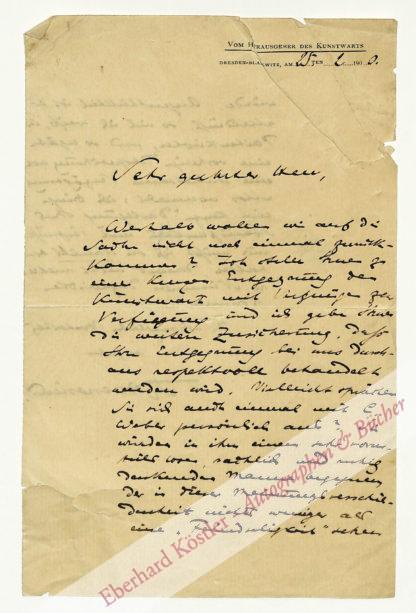 VOM HERAUSGEBER DES KUNSTWARTS
DRESDEN-BLASEWITZ, AM 25TEN 2. 1900.
Sehr geehrter Herr,
Weshalb wollen wir auf die
Sache nicht noch einmal zurück-
kommen? Ich stelle Ihnen zu
eine kurze Entgegnung den
Kunstwart mit Vergnügen zur
Verfügung und ich gebe Ihnen
die weitere Zusicherung, dass
Ihre Entgegnung bei uns durch-
aus respektvoll behandelt
werden wird. Vielleicht sprächen
Sie sich auch einmal mit
Weber persönlich aus? Sie
würden in ihm einen sehr
sachlich und ruhig
denkenden Mann
der in dieser Meinungsverschie-
denheit nichts weniger als
eine „Feindseligkeit" sehen
Eberhard Köstler Autographen & Bücher